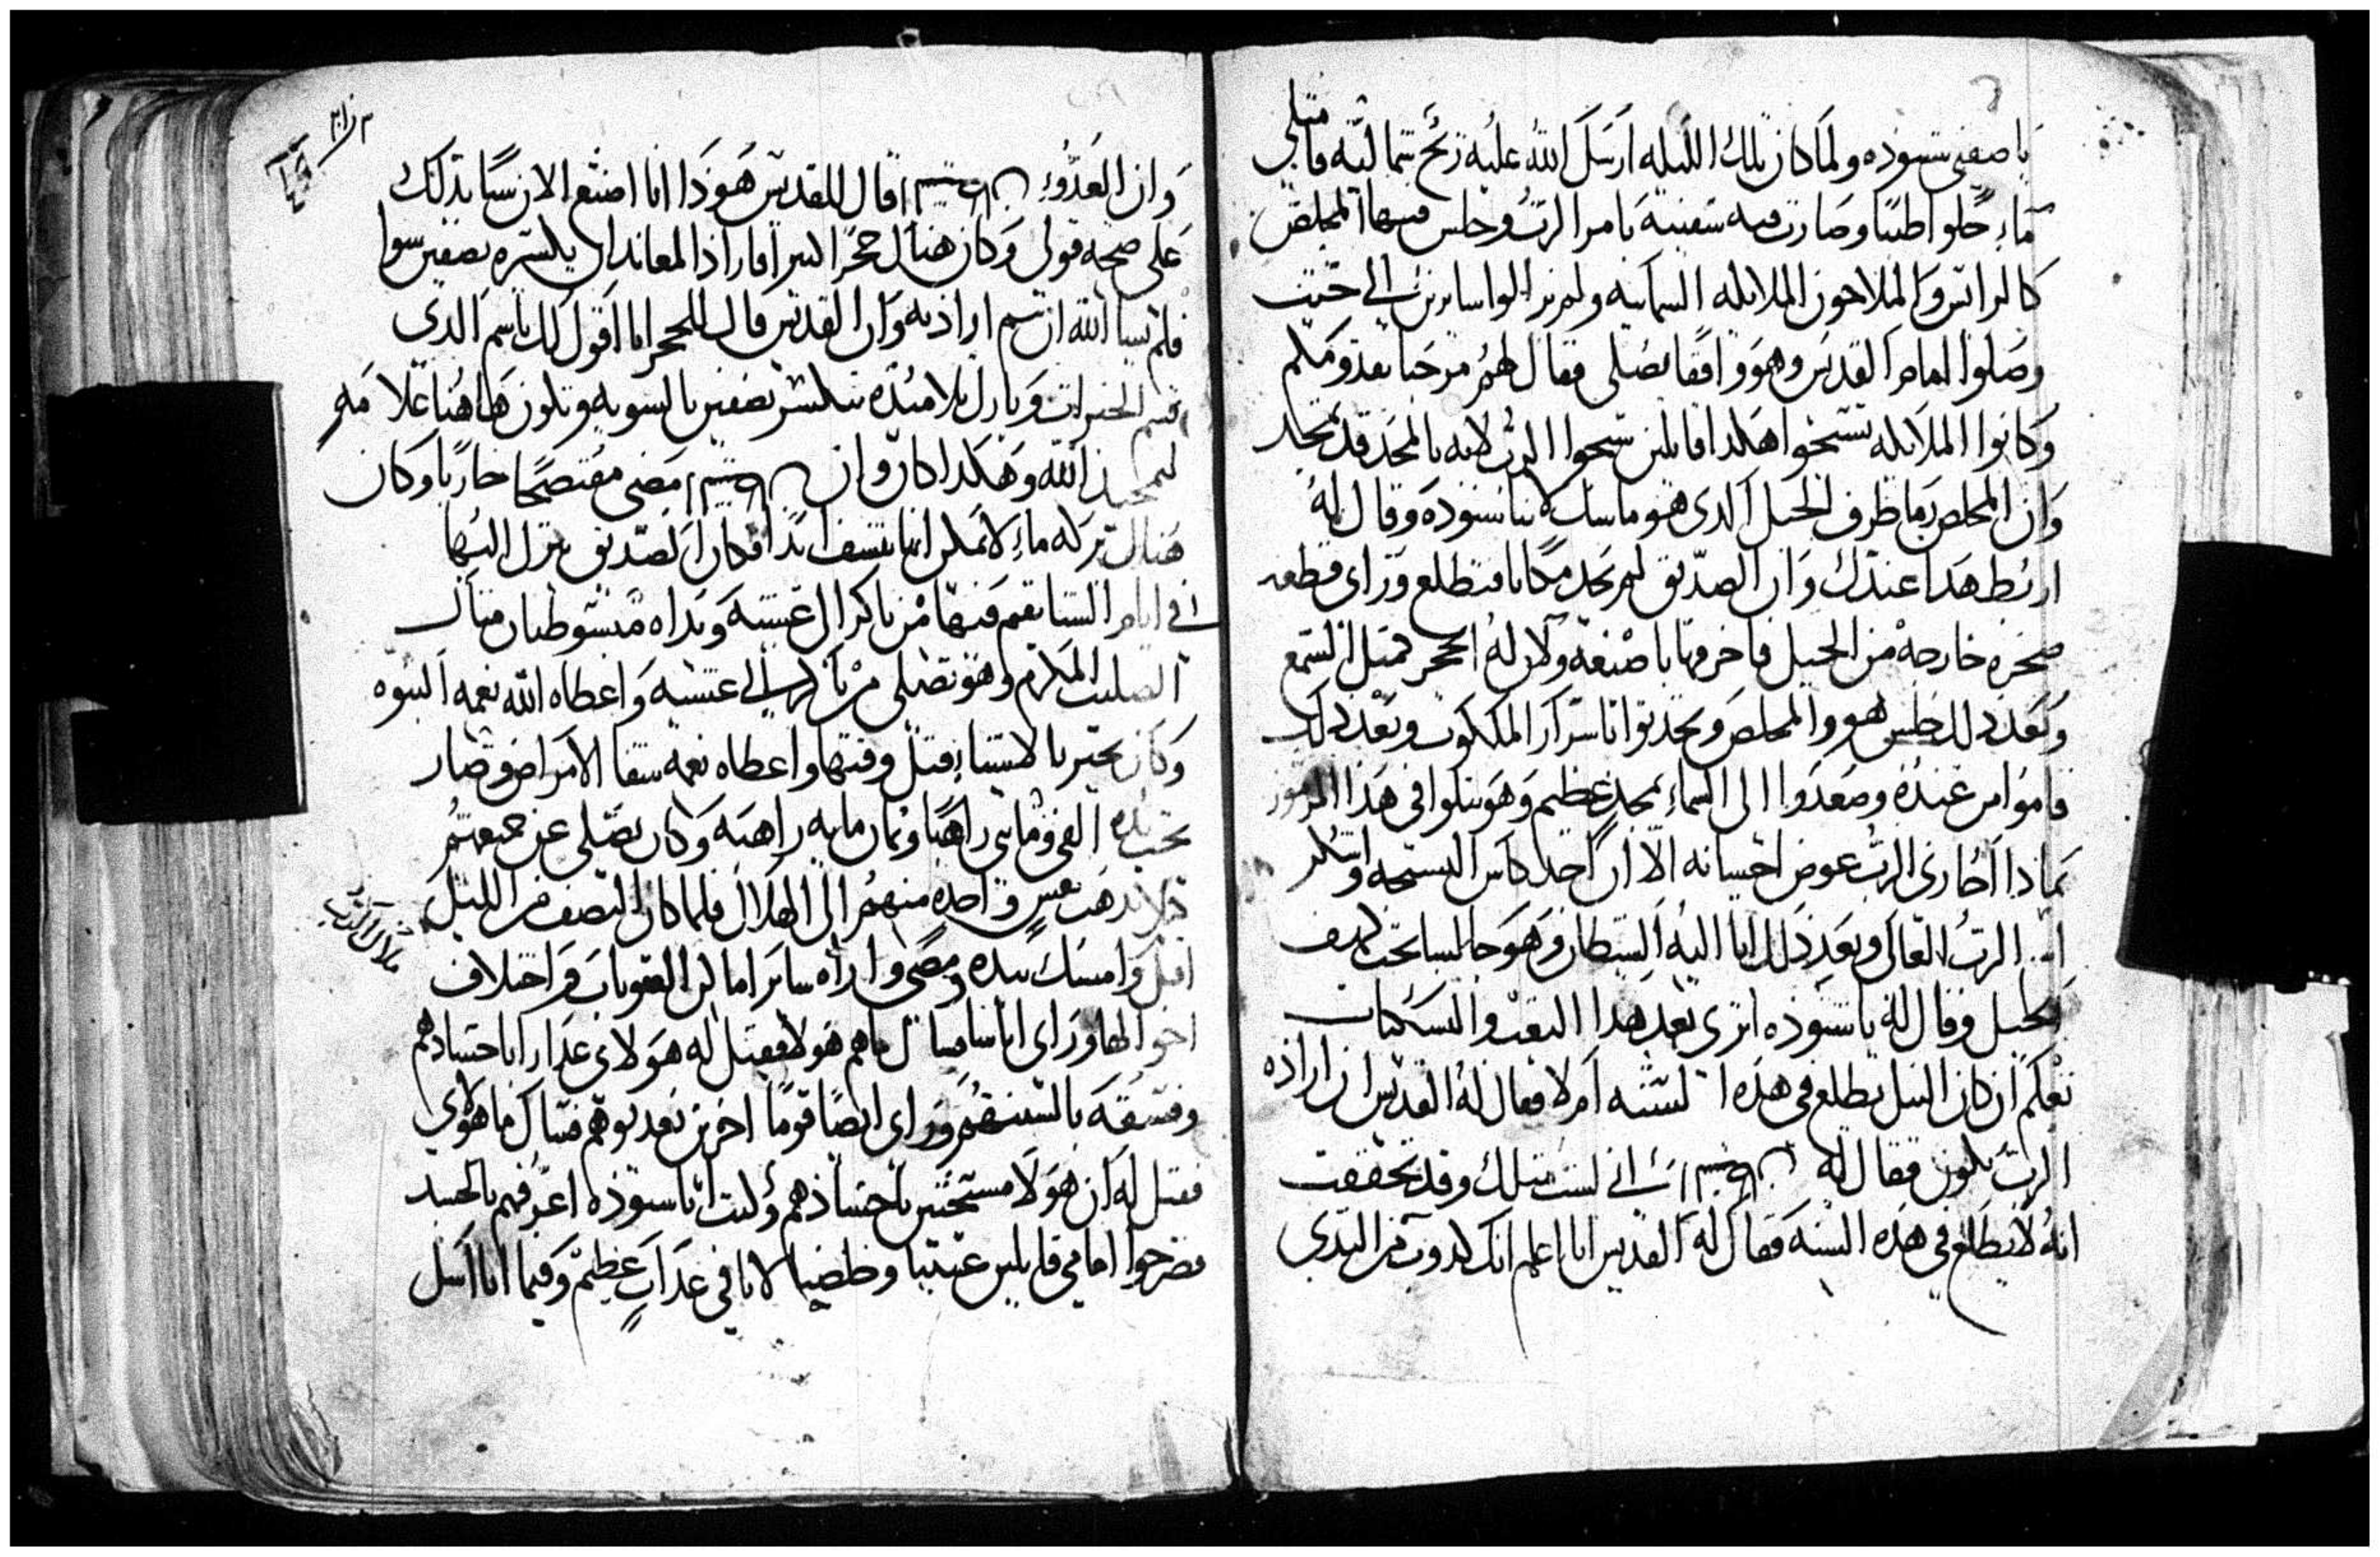 يا صفيى شنوده ولما كان تلك الليله ارسل الله عليه ريح شماليه فامتلى
ماء حلوا طيبا وصارت فيه سفينة بامر الرب وجلس فيها المخلص
كالرايس والملاحون الملايكه السمائيه ولم يزالوا سايرين الى حيث
وصلوا امام القديس وهو واقفا يصلى فقال لهم مرحبا بقدومكم
وكانوا الملايكه يسبحوا هكدا قايلين سبحوا الرب لانه بالمجد قد تمجد
وان المخلص رما طرف الحبل الدى هو ماسك لانبا شنوده وقال له
اربط هدا عندك وان الصديق لم يجد مكانا فتطلع وراى قطعه
صخره خارجة من الجبل فاخرقها باصبعه ولان له الحجر مثل الشمع
وبعد دلك جلس هو والمخلص ويحدثوا باسرار الملكوت وبعد دلك
قاموا من عنده وصعدوا الى السماء بمجد عظيم وهو يتلوا فى هذا المزمور
بمادا اجازى الرب عوض احسانه الا ان اخد كاس التسبحه واشكر
اسم الرب العالى وبعد دلك اتا اليه الشيطان وهو جالسا تحت كهف
الجبل وقال له يا شنوده اترى بعد هدا التعب والنسكيات
تعلم ان كان النيل يطلع فى هذه السنه ام لا فقال له القديس ان اراده
الرب تكون فقال له انى لست مثلك وقد تحققت
انه لا يطلع فى هذه السنه فقال له القديس انا اعلم انك كدوب من البدى
وان العدوء قال للقديس هودا انا اصنع الان سيا بدلك
على صحة قولى وكان هناك حجرا كبيرا فاراد المعاند ان يكسره نصفين سوا
فلم يشا الله ان تتم ارادته وان القديس قال للحجر انا اقول لك باسم الدى
قسم الخبزات وبارك تلاميده تنكسر نصفين بالسويه وتكون هاهنا علامه
لتمجيد الله وهكدا كان وان مضى مفتضحا خازيا وكان
هناك بركه ماء لا يمكن انها تنشف ابدا فكان الصديق ينزل اليها
فى ايام الشتا يقم فيها من باكر الى عشية ويداه مبسوطتان مثال
الصليب المكرم وهو يصلى من باكر الى عشيه واعطاه الله نعمه النبوه
وكان يخبر بالاشياء قبل وقتها واعطاه نعمه شفا الامراض وصار
تحت يده الفى ومايتى راهبا وثمان مايه راهبه وكان يصلى عن جميعهم
ليلا تدهب نفس واحده منهم الى الهلاك فلما كان النصف من الليل
اقبل وامسك بيده ومضى واراه ساير اماكن العقوبات واختلاف
احوالها وراى اناسا فسال ما هم هولا فقيل له هولاى عدارا باجسادهم
وفسقه بالسنتهم وراى ايضا قوما اخرين يعدبوهم فسال ما هولاى
فقيل له ان هولا مستحين باجسادهم وليت انا شنوده اعرفهم بالجسد
فصرخوا امامى قايلين عيننا وخلصنا لاننا فى عداب عظيم وفيما انا اسل
ملاك الرب